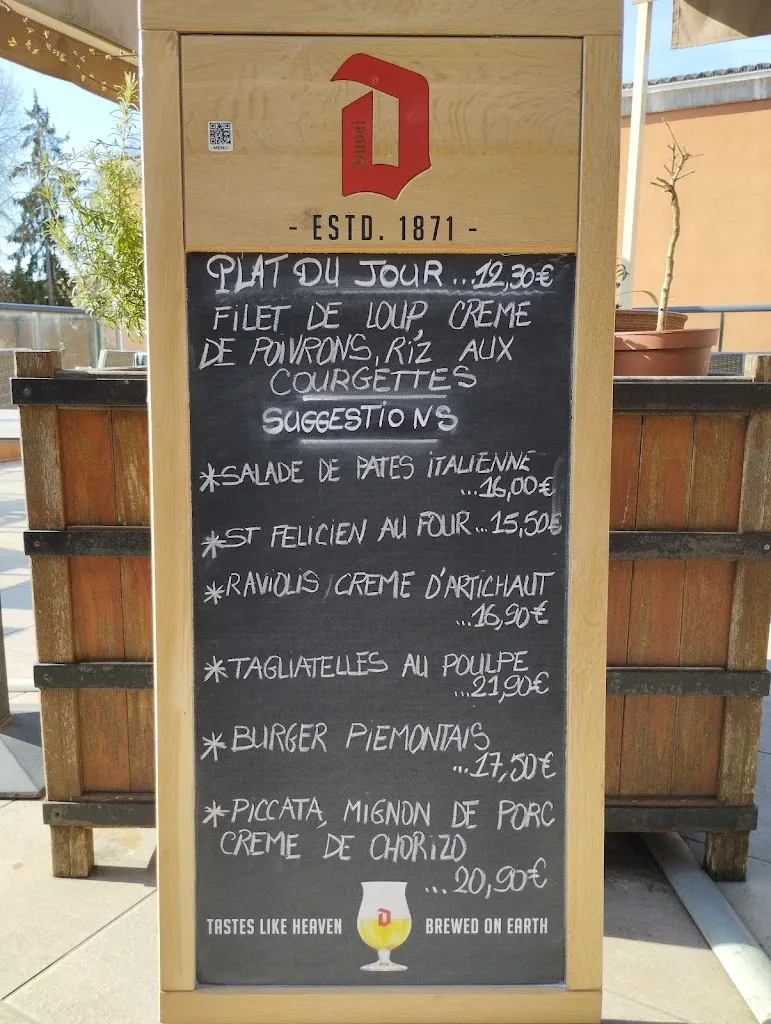 MENU
Duvel
- ESTD. 1871 -
PLAT DU JOUR ...12,30€
FILET DE LOUP, CREME
DE POIVRONS, RiZ AUX
COURGETTES
SUGGESTIONS
*SALADE DE PATES iTALIENNE
...16,00€
*ST FELICIEN AU FOUR...15,50€
*RAVIOLIS, CREME D'ARTICHAUT
...16,90€
*TAGLIATELLES AU POULPE
...21,90€
*BURGER PIEMONTAIS
...17,50€
*PICCATA, MIGNON DE PORC
CREME DE CHORIZO
...20,90€
TASTES LIKE HEAVEN BREWED ON EARTH